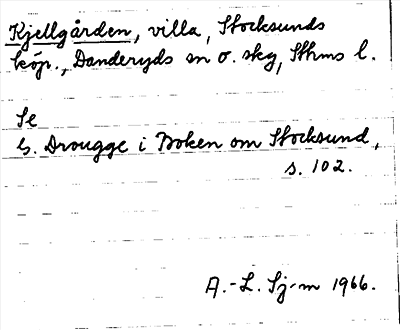 Kjellgården, villa, Stocksunds
köp., Danderyds sn o. skg, Sthms l.
Se
G. Drougge i Boken om Stocksund,
s. 102.
A.-L. Sj-m 1966.